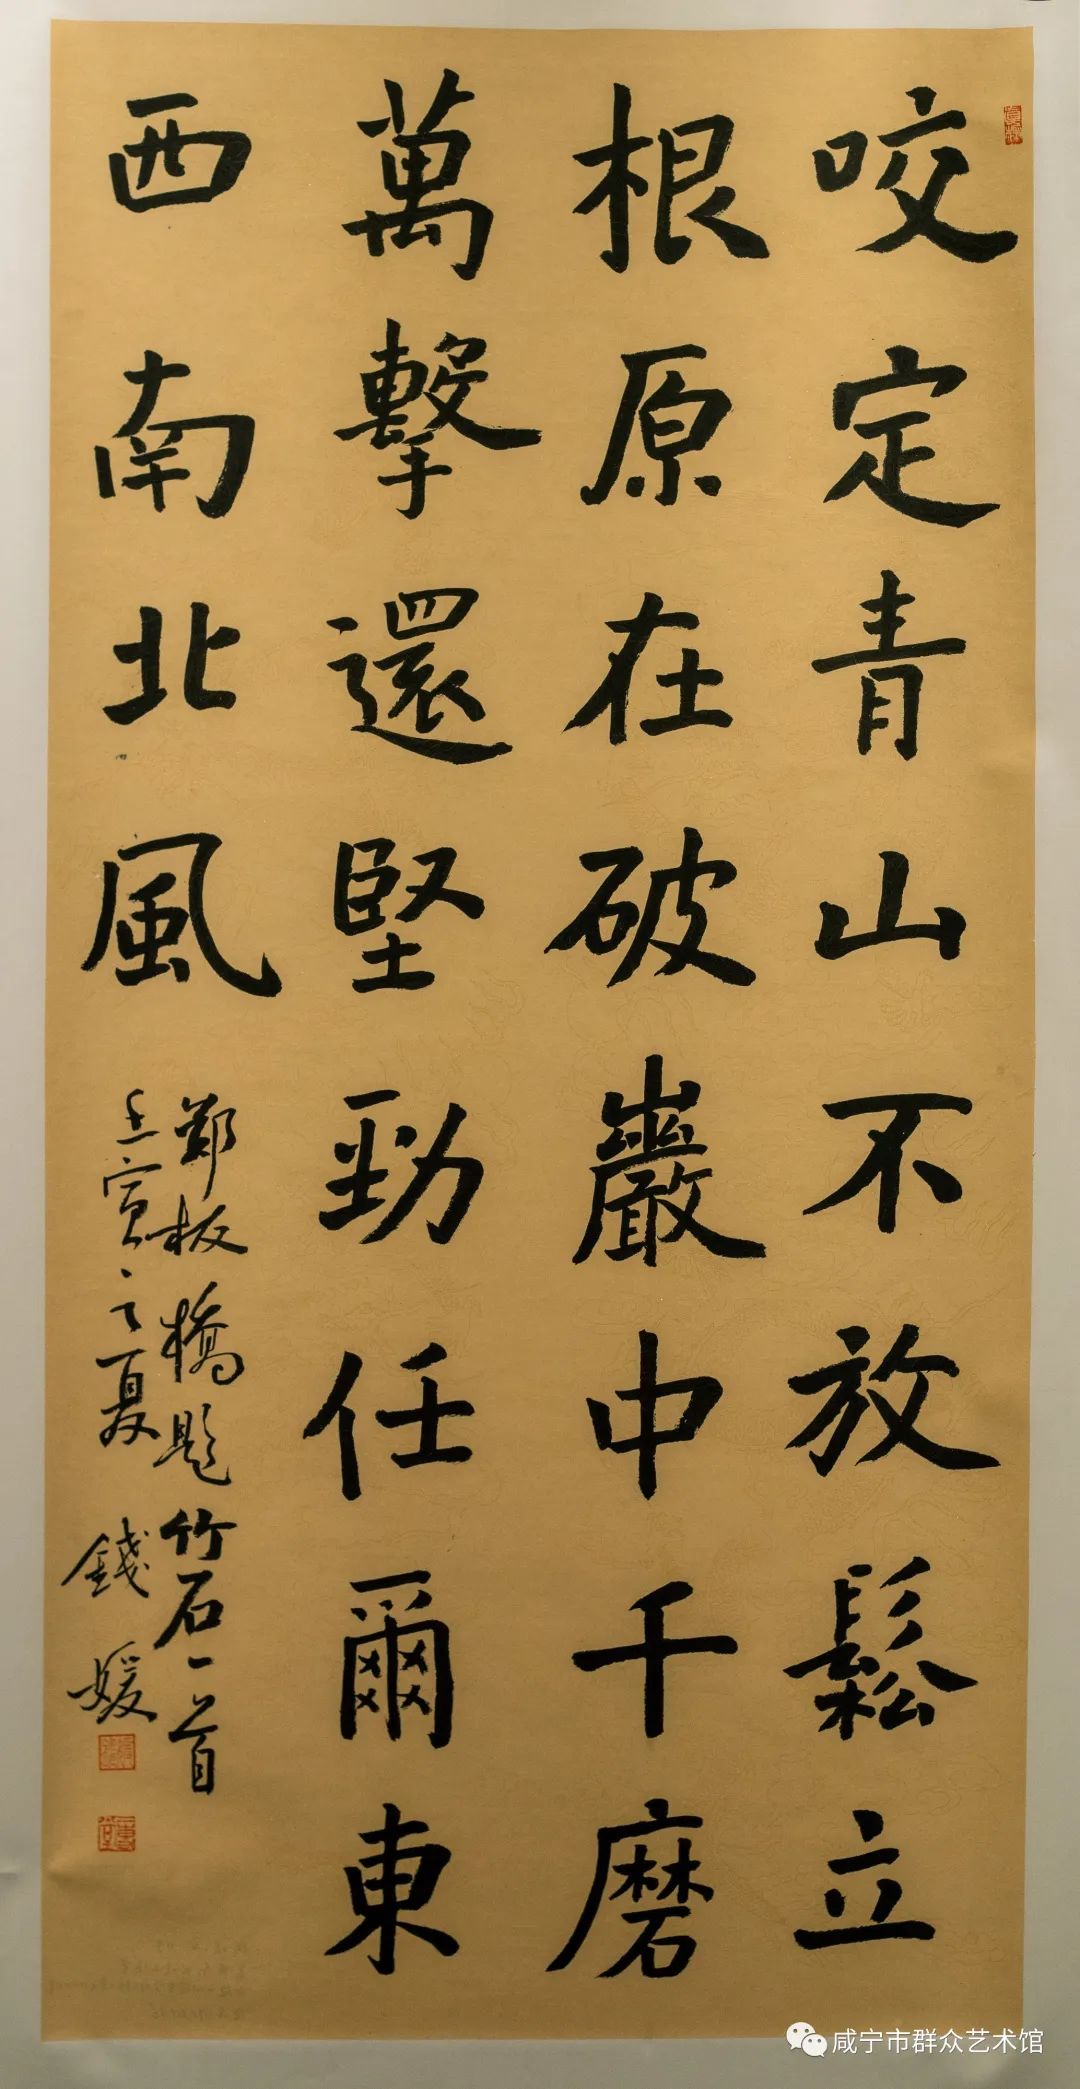 咬定青山不放鬆立
根原在破巖中千磨
萬擊還堅勁任爾東
西南北風
鄭板橋題竹石一首
壬寅之夏 錢媛
咸宁市群众艺术馆